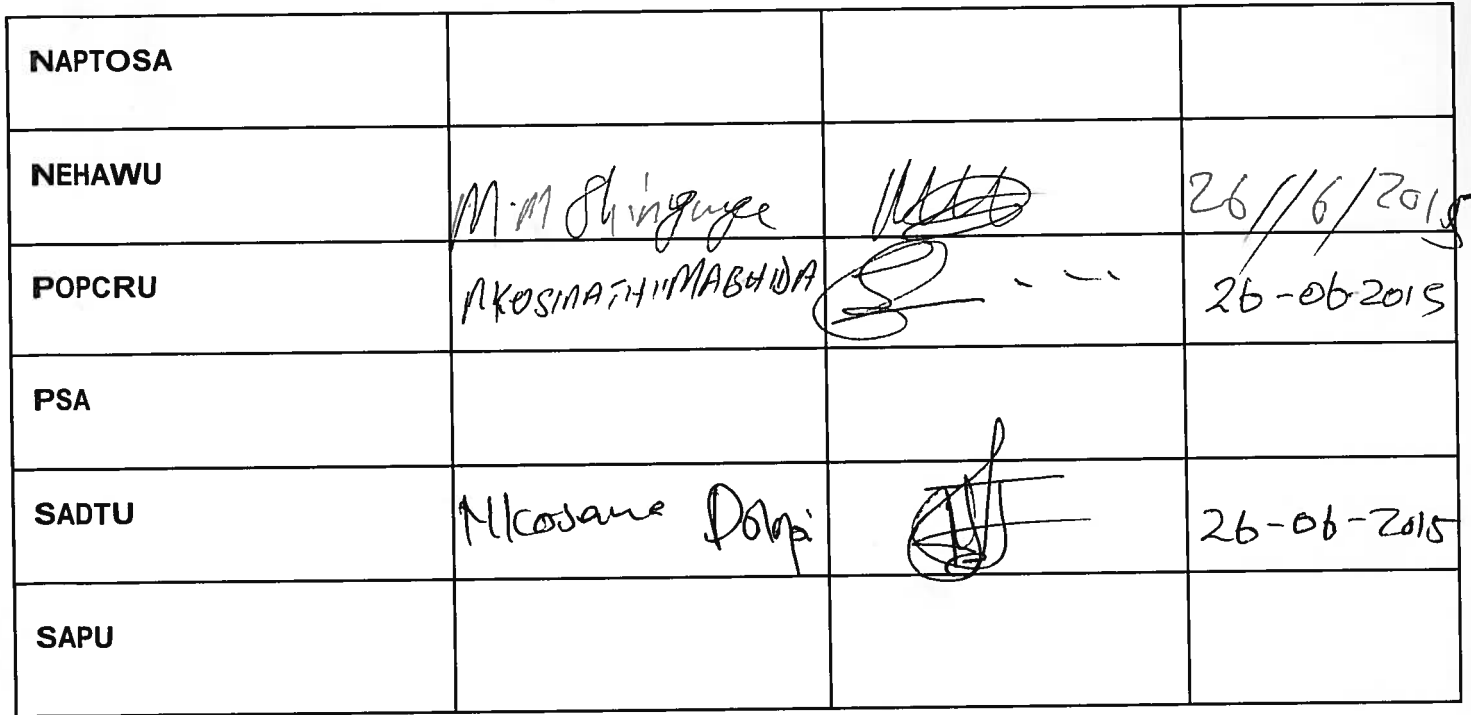 NAPTOSA
NEHAWU M.M Shingange 26/6/2015
POPCRU NKOSINATHI MABHIDA 26-06-2015
PSA
SADTU Nkosana Dolopi 26-06-2015
SAPU